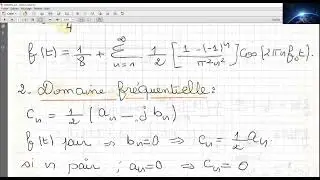 4
f(t) = 1/8 + ∞∑n=1 1/2 [ (1-(-1)^n) / (π²n²) ] cos(2πn f₀t).
2. Domaine fréquentielle:
Cn = 1/2 (an - j bn)
f(t) pair ⇒ bn=0 ⇒ Cn = 1/2 an
si n pair ; an=0 ⇒ Cn = 0